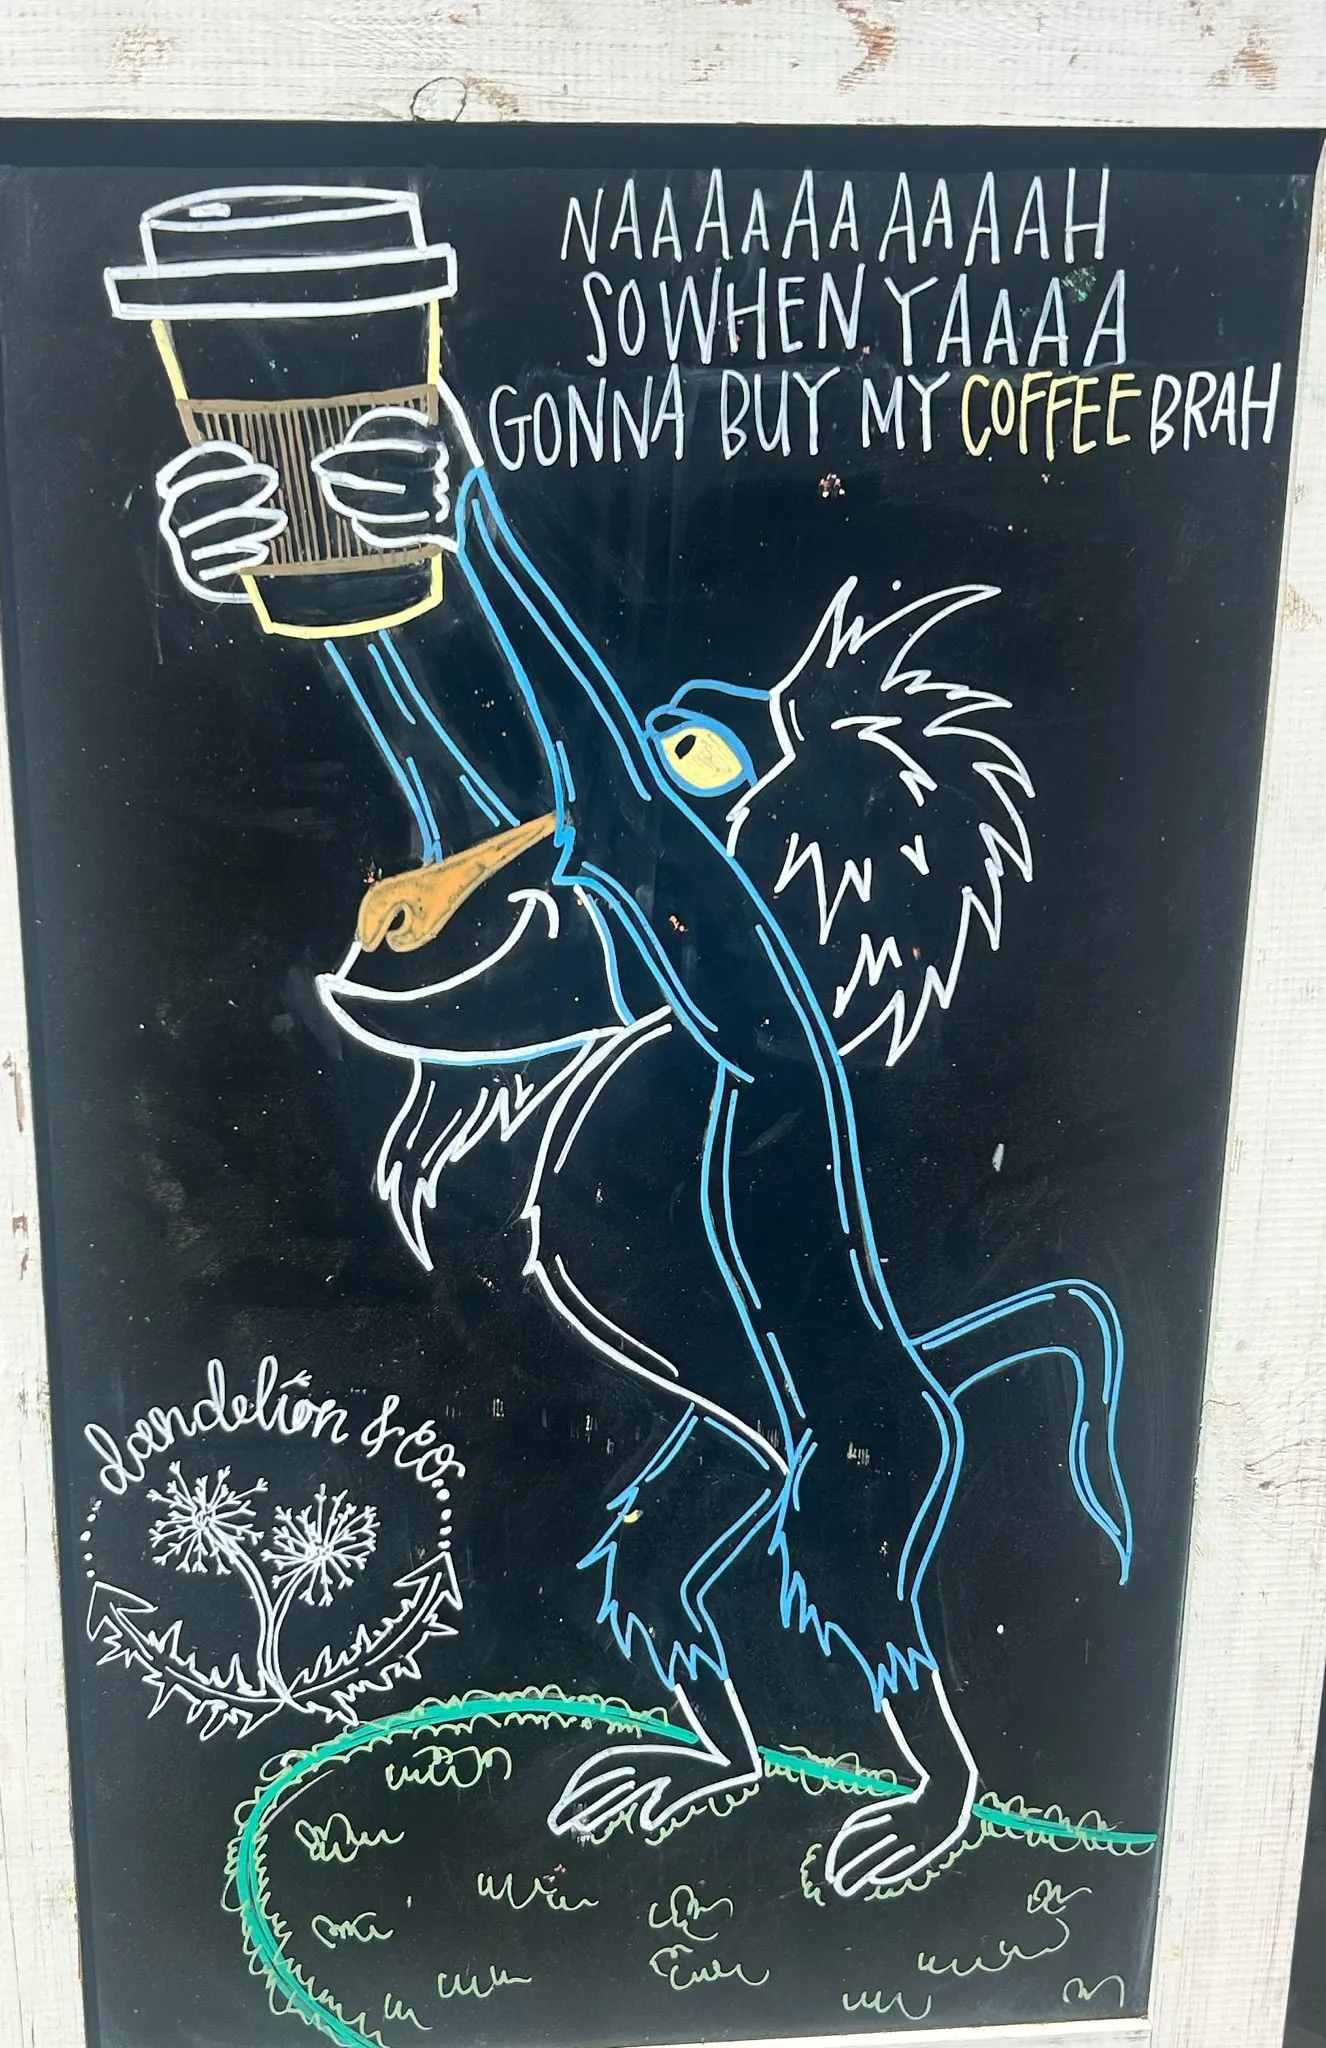 NAAAAAAAAAAAH
SO WHEN YAAAA
GONNA BUY MY COFFEE BRAH
dandelion & co.